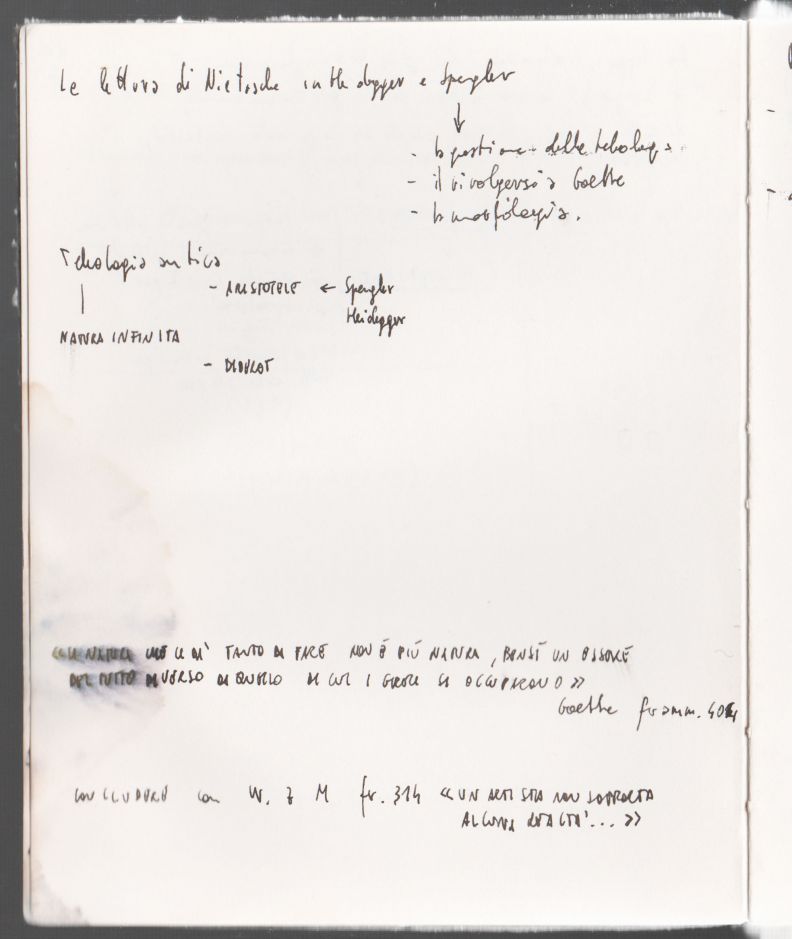 La lettura di Nietzsche in Heidegger e Spengler
↓
- la questione della teleologia.
- il rivolgersi a Goethe
- la morfologia.
Teleologia antica
- ARISTOTELE ← Spengler
Heidegger
NATURA INFINITA
- DIDEROT
«LA NATURA CHE CI DÀ TANTO DA FARE NON È PIÙ NATURA, BENSÌ UN ESSERE
DEL TUTTO DIVERSO DA QUELLO DI CUI I GRECI SI OCCUPARONO»
Goethe framm. 404
CONCLUDERE con W. z M fr. 314 «UN ARTISTA NON SOPPORTA
ALCUNA REALTÀ...»